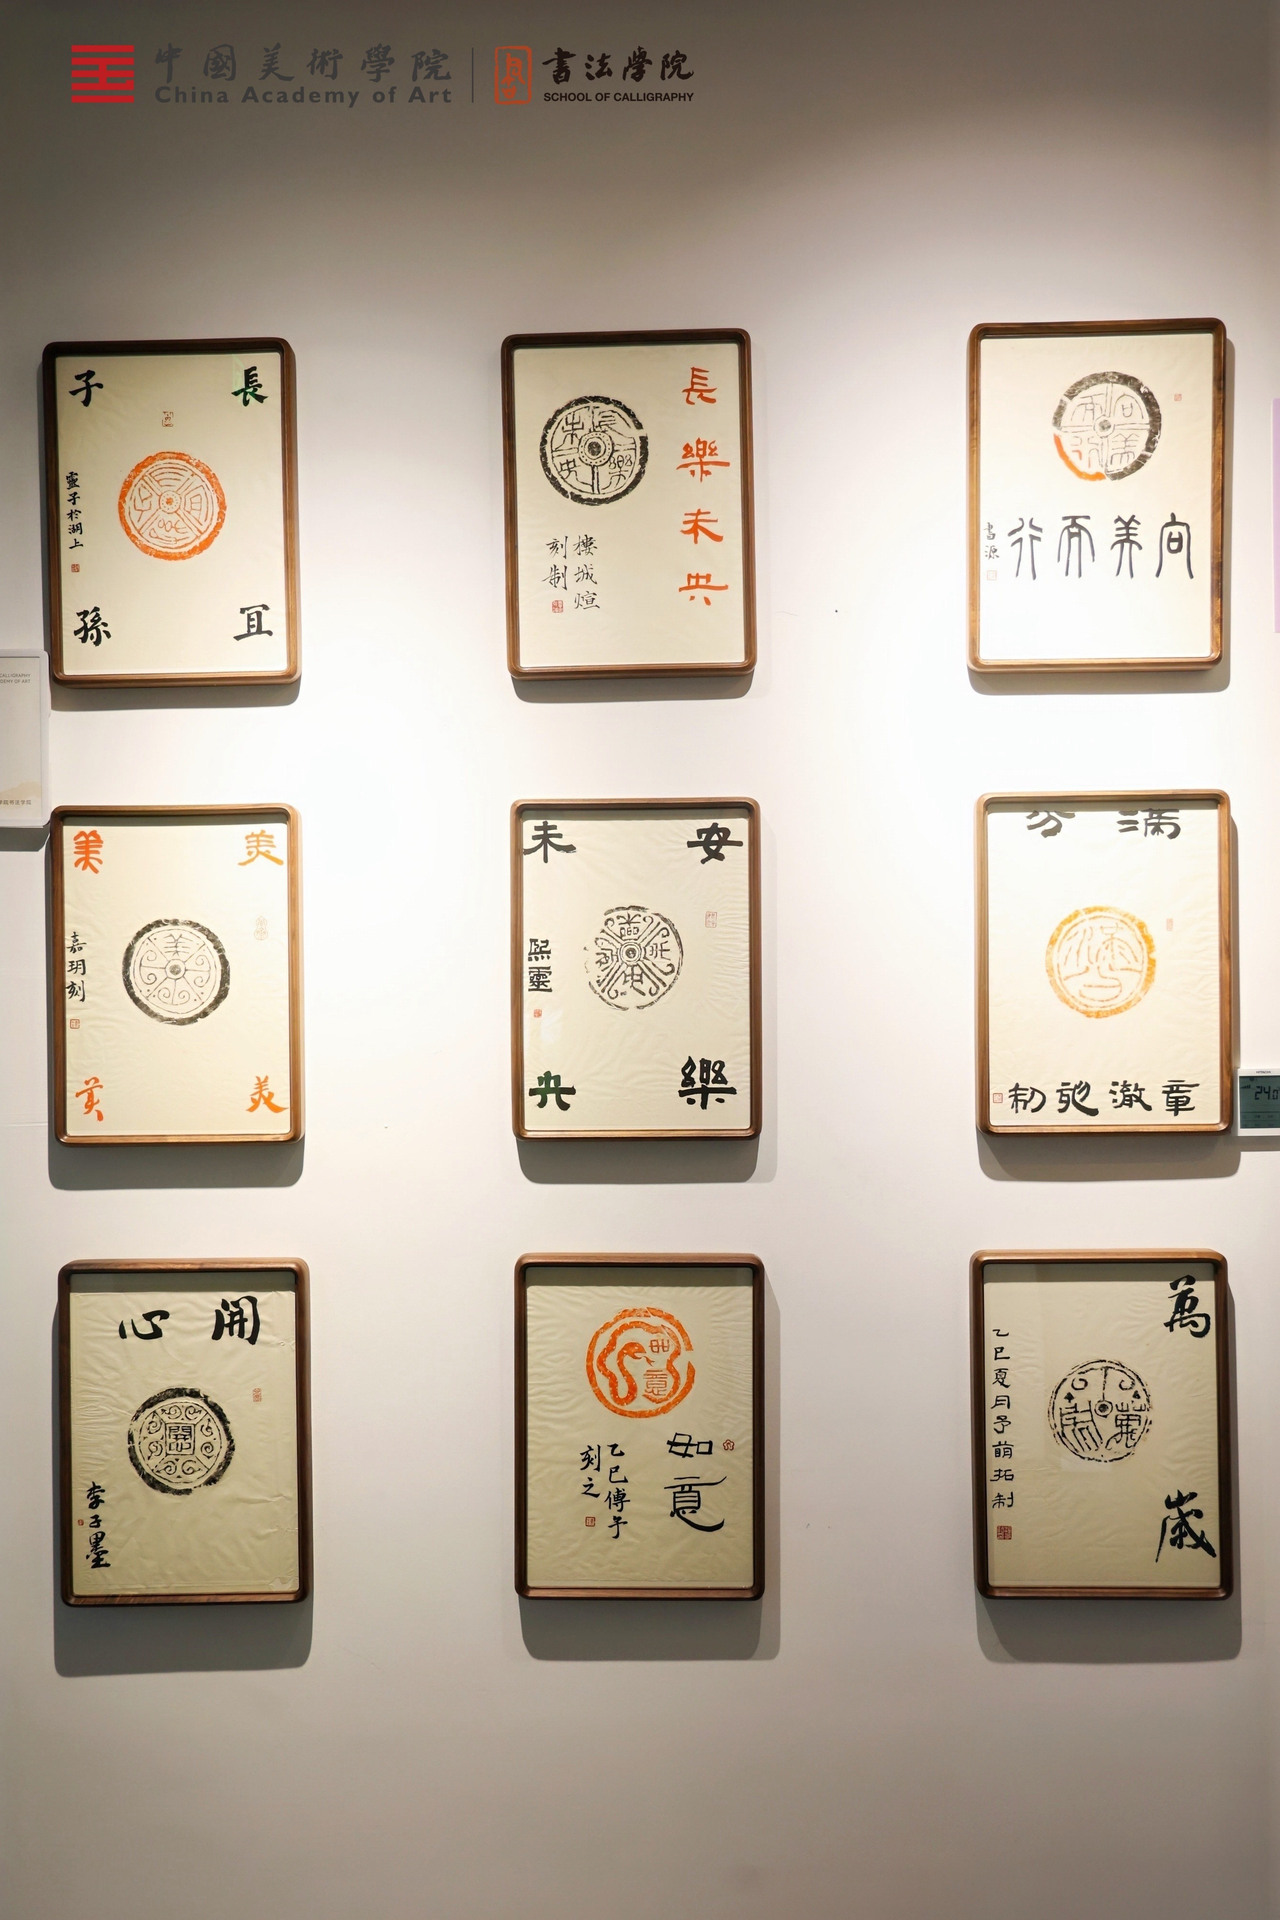 中國美術學院
China Academy of Art
書法學院
SCHOOL OF CALLIGRAPHY
長宜
子孫
靈子於湖上
長樂未央
樓城煊
刻制
向美而行
書源
美美
美美
嘉玥刻
安樂
未央
熙靈
滿分
章澈
制
開心
李子墨
如意
乙巳傅午
刻之
萬歲
乙巳夏月予萌拓制
CALLIGRAPHY
24.0